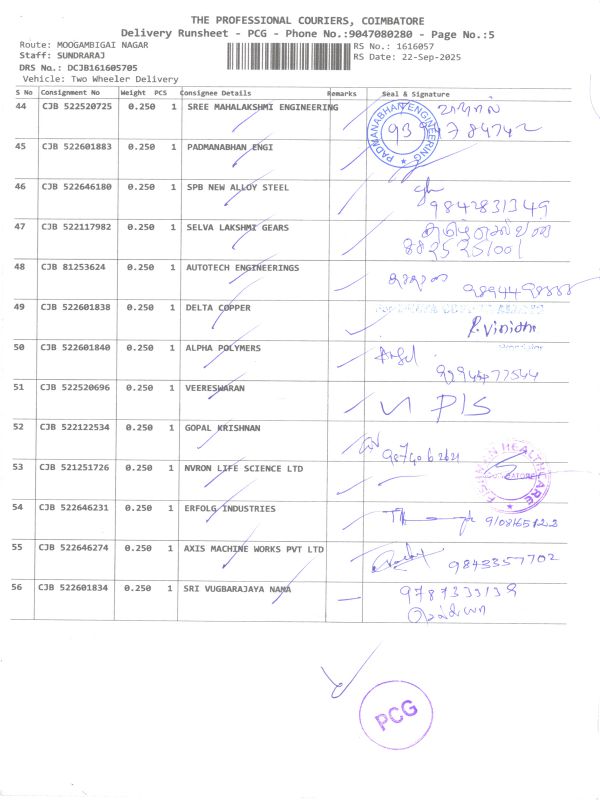 THE PROFESSIONAL COURIERS, COIMBATORE
Delivery Runsheet - PCG - Phone No.:9047080280 - Page No.:5
Route: MOOGAMBIGAI NAGAR RS No.: 1616057
Staff: SUNDRARAJ RS Date: 22-Sep-2025
DRS No.: DCJB161605705
Vehicle: Two Wheeler Delivery
S No Consignment No Weight PCS Consignee Details Remarks Seal & Signature
44 CJB 522520725 0.250 1 SREE MAHALAKSHMI ENGINEERING
PADMANABHAN ENGINEERING
45 CJB 522601883 0.250 1 PADMANABHAN ENGI
46 CJB 522646180 0.250 1 SPB NEW ALLOY STEEL
9842831349
47 CJB 522117982 0.250 1 SELVA LAKSHMI GEARS
48 CJB 81253624 0.250 1 AUTOTECH ENGINEERINGS
49 CJB 522601838 0.250 1 DELTA COPPER
P. Vinidhi
50 CJB 522601840 0.250 1 ALPHA POLYMERS
51 CJB 522520696 0.250 1 VEERESWARAN
52 CJB 522122534 0.250 1 GOPAL KRISHNAN
53 CJB 521251726 0.250 1 NVRON LIFE SCIENCE LTD
54 CJB 522646231 0.250 1 ERFOLG INDUSTRIES
55 CJB 522646274 0.250 1 AXIS MACHINE WORKS PVT LTD
9843357702
56 CJB 522601834 0.250 1 SRI VUGBARAJAYA NAMA
9787333139
PCG